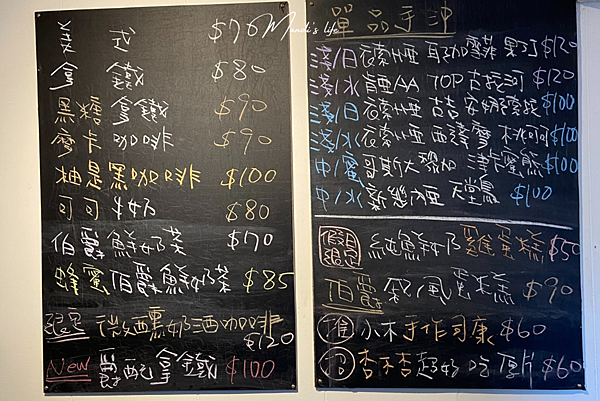 Mandi's life
美式 $70
拿鐵 $80
黑糖拿鐵 $90
摩卡咖啡 $90
柚是黑咖啡 $100
可可牛奶 $80
伯爵鮮奶茶 $70
蜂蜜伯爵鮮奶茶 $85
限定 微醺奶酒咖啡 $120
New 爵配拿鐵 $100
單品手沖
淺/日 衣索比亞 耶加雪菲 果丁丁 $120
淺/水 肯亞AA TOP $120
淺/日 衣索比亞 $100
淺/水 衣索比亞 西達摩 $100
中/蜜 哥斯大黎加 $100
中/水 新幾內亞 天堂鳥 $100
假日限定 純鮮奶雞蛋糕 $50
伯爵戚風蛋糕 $90
小木手作司康 $60
杏不杏超好吃厚片 $60